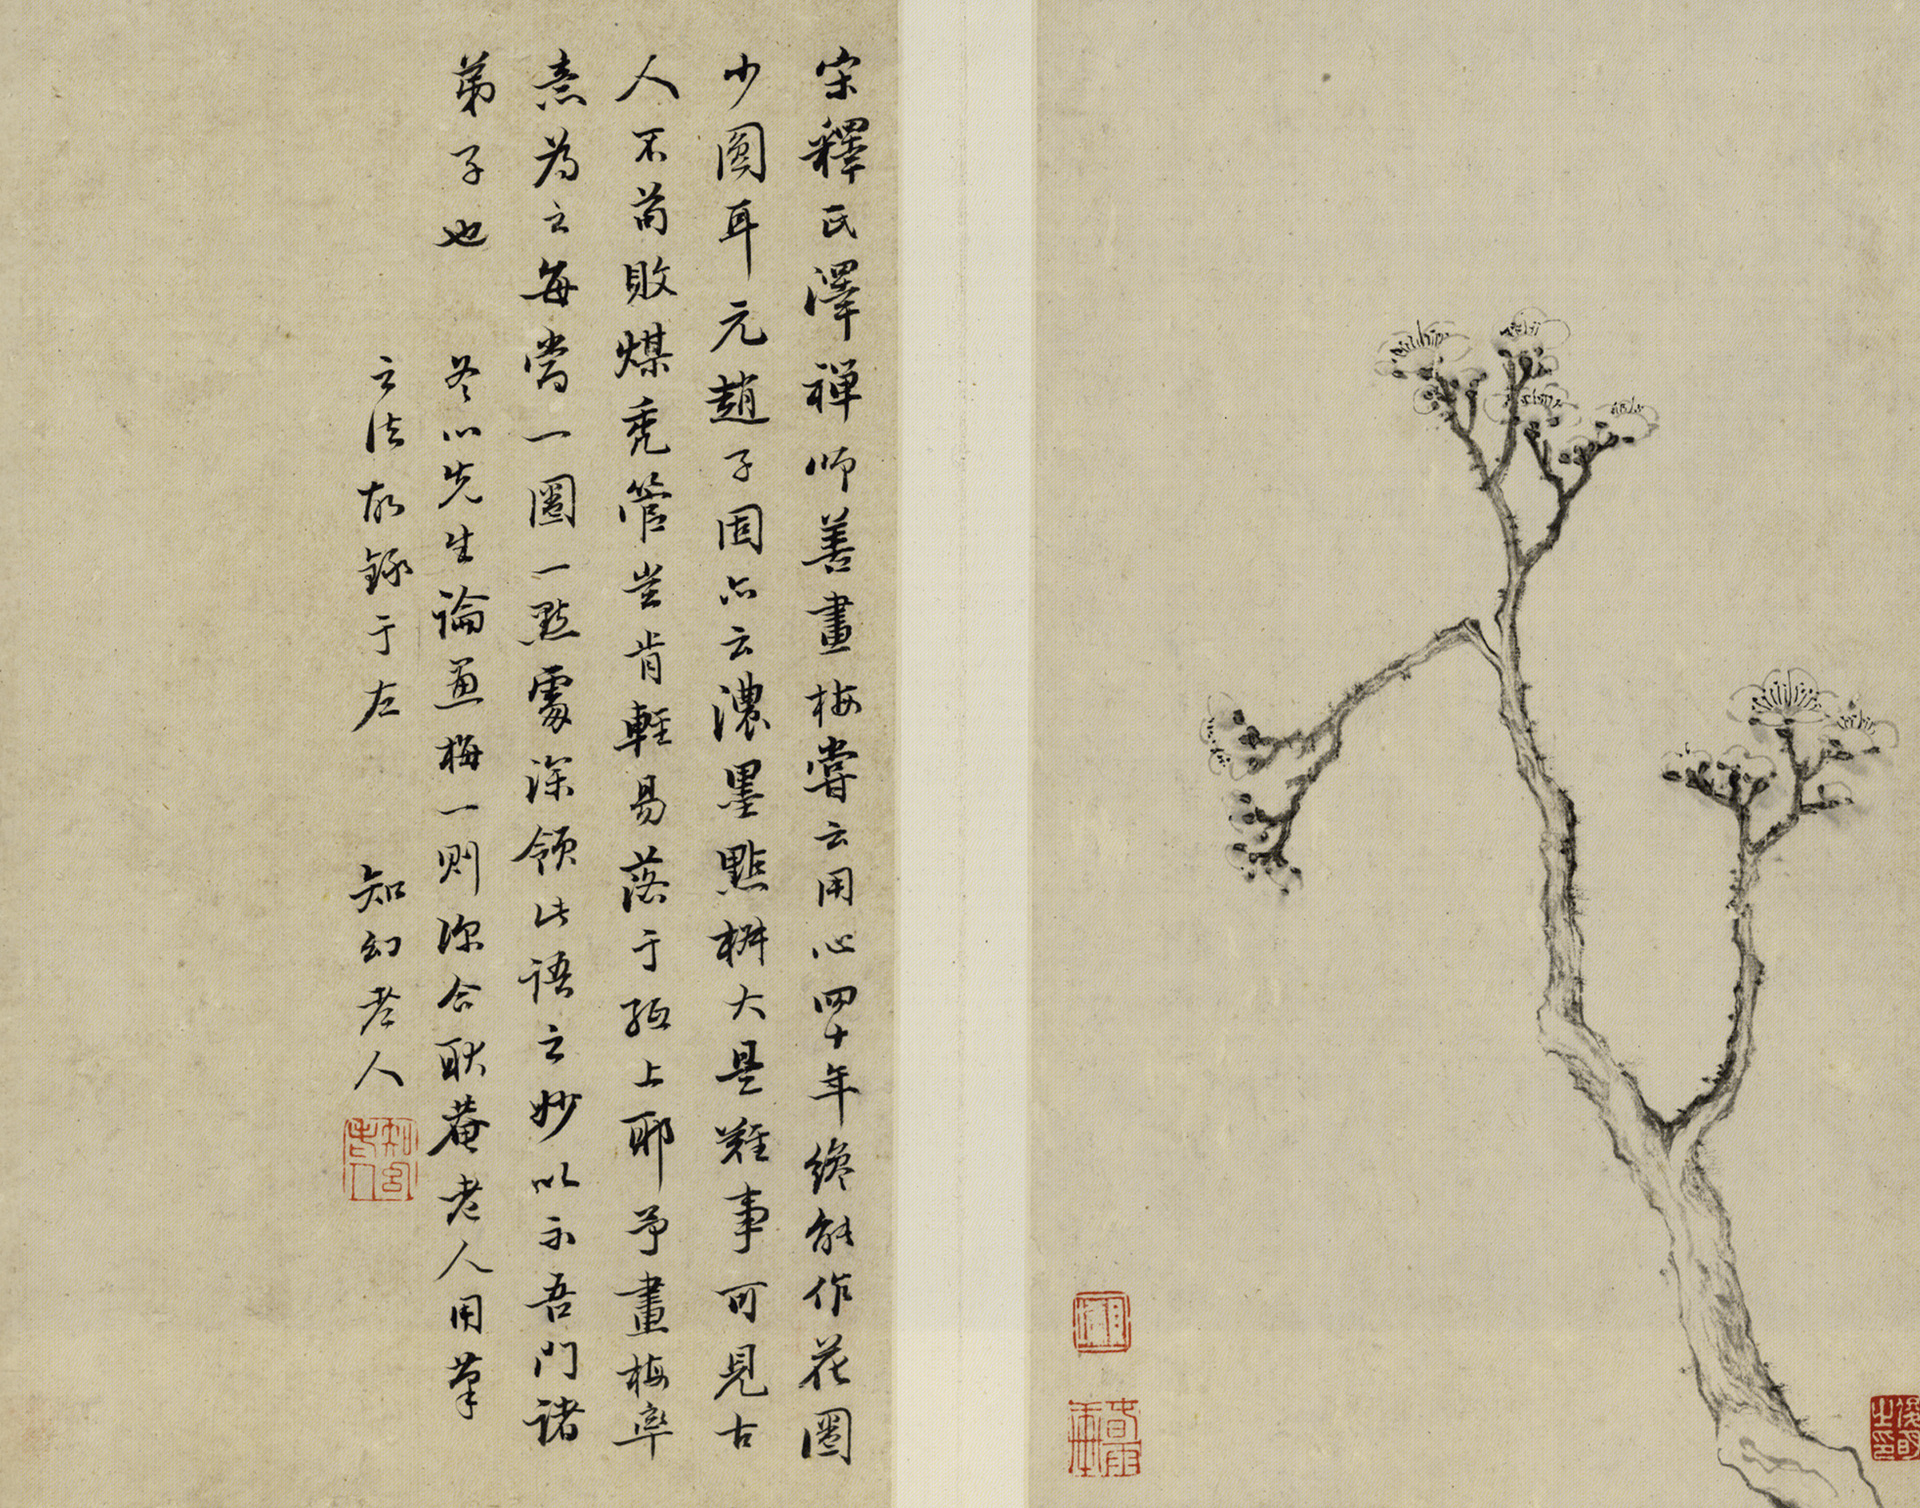 宋釋氏澤禪師善畫梅嘗云用心四十年纔能作花圈
少圓耳元趙子固亦云濃墨點椒大是難事可見古
人不苟敗煤禿管豈肯輕易落于紙上耶予畫梅率
意為之每當一圈一點處深領此語之妙以示吾門諸
弟子也
冬心先生論畫梅一則深合耿菴老人用筆
之法故錄于左
知幻老人